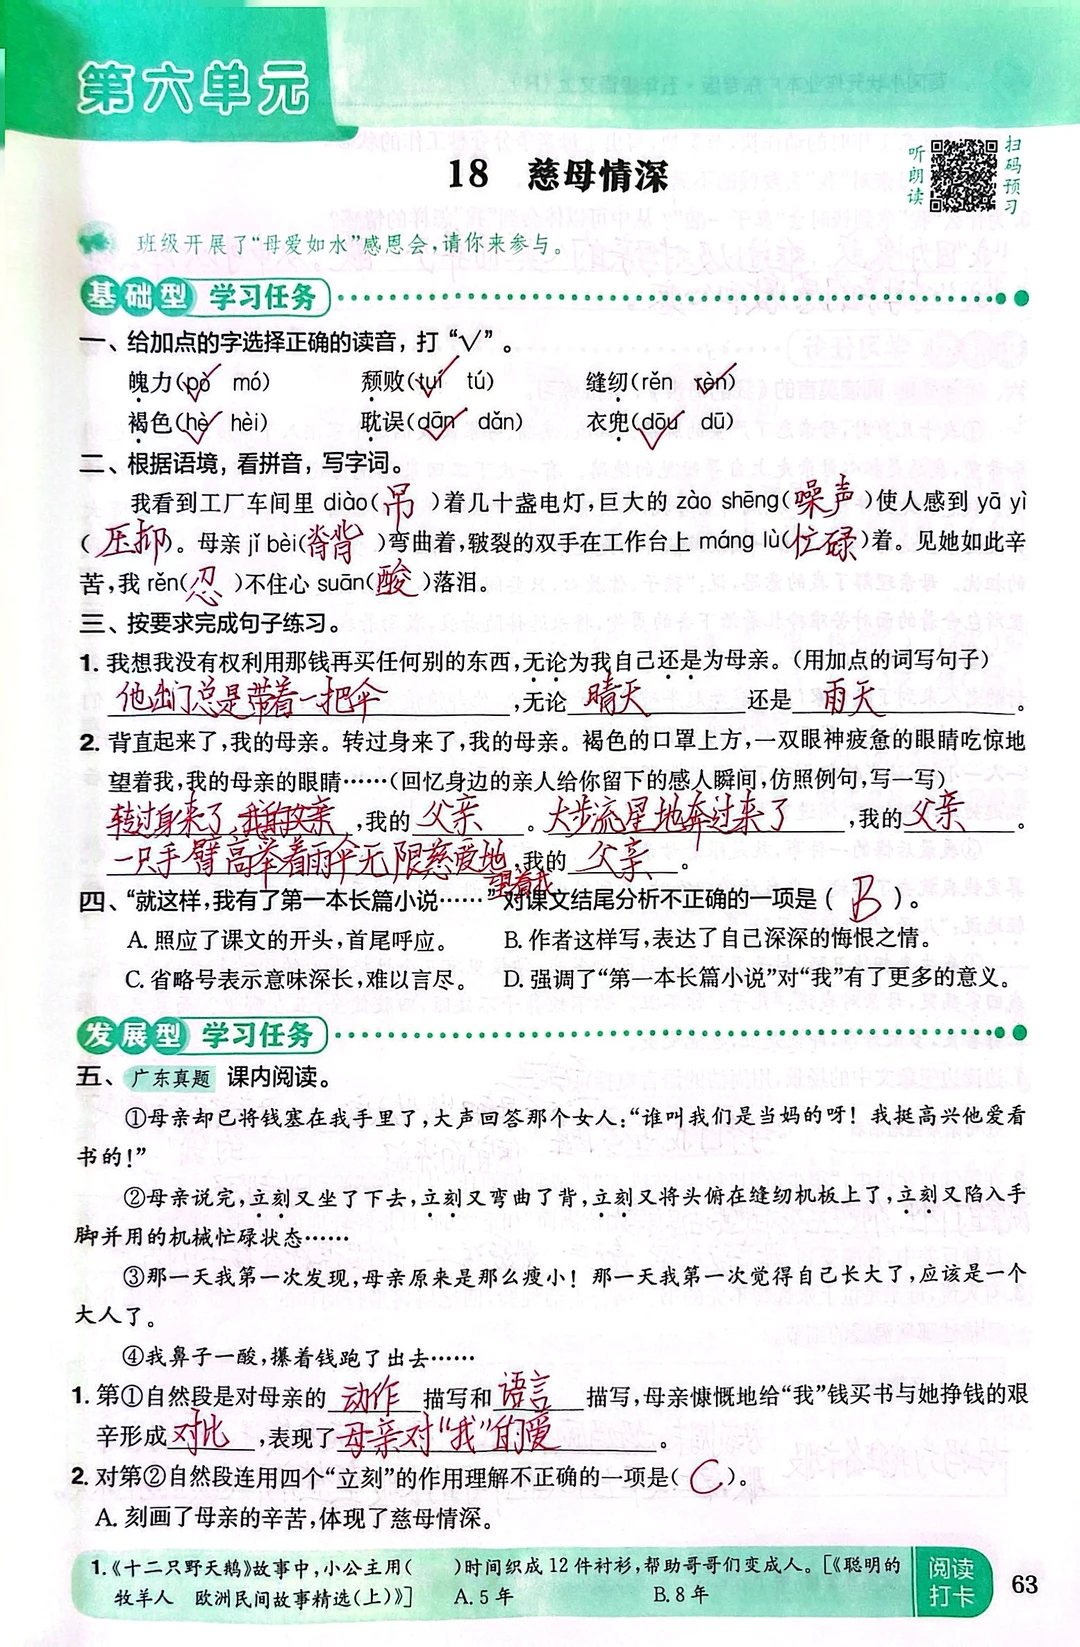 第六单元
18 慈母情深
听朗读
扫码预习
班级开展了“母爱如水”感恩会,请你来参与。
基础型 学习任务
一、给加点的字选择正确的读音，打“√”。
魄力(pò√ mó) 颓败(tuí√ tú) 缝纫(rěn rèn√)
褐色(hè√ hèi) 耽误(dān√ dǎn) 衣兜(dōu√ dū)
二、根据语境，看拼音，写字词。
我看到工厂车间里 diào(吊)着几十盏电灯,巨大的 zào shēng(噪声)使人感到 yā yì
(压抑)。母亲 jǐ bèi(脊背)弯曲着,皲裂的双手在工作台上 máng lù(忙碌)着。见她如此辛
苦,我 rěn(忍)不住心 suān(酸)落泪。
三、按要求完成句子练习。
1. 我想我没有权利用那钱再买任何别的东西,无论为我自己还是为母亲。(用加点的词写句子)
他出门总是带着一把伞,无论 晴天 还是 雨天 。
2. 背直起来了,我的母亲。转过身来了,我的母亲。褐色的口罩上方,一双眼神疲惫的眼睛吃惊地
望着我,我的母亲的眼睛……(回忆身边的亲人给你留下的感人瞬间,仿照例句,写一写)
转过身来了,我的父亲,我的 父亲 。大步流星地奔过来了,我的 父亲 。
一只手臂高举着雨伞无限慈爱地望着我,我的 父亲 。
四、“就这样,我有了第一本长篇小说……”对课文结尾分析不正确的一项是( B )。
A. 照应了课文的开头,首尾呼应。 B. 作者这样写,表达了自己深深的悔恨之情。
C. 省略号表示意味深长,难以言尽。 D. 强调了“第一本长篇小说”对“我”有了更多的意义。
发展型 学习任务
五、广东真题 课内阅读。
①母亲却已将钱塞在我手里了,大声回答那个女人:“谁叫我们是当妈的呀！我挺高兴他爱看
书的!”
②母亲说完,立刻又坐了下去,立刻又弯曲了背,立刻又将头俯在缝纫机板上了,立刻又陷入手
脚并用的机械忙碌状态……
③那一天我第一次发现,母亲原来是那么瘦小！那一天我第一次觉得自己长大了,应该是一个
大人了。
④我鼻子一酸,攥着钱跑了出去……
1. 第①自然段是对母亲的 动作 描写和 语言 描写,母亲慷慨地给“我”钱买书与她挣钱的艰
辛形成 对比 ,表现了 母亲对“我”的爱 。
2. 对第②自然段连用四个“立刻”的作用理解不正确的一项是( C )。
A. 刻画了母亲的辛苦,体现了慈母情深。
1.《十二只野天鹅》故事中,小公主用( )时间织成 12 件衬衫,帮助哥哥们变成人。[《聪明的
牧羊人 欧洲民间故事精选(上)》] A. 5 年 B. 8 年
阅读打卡
63